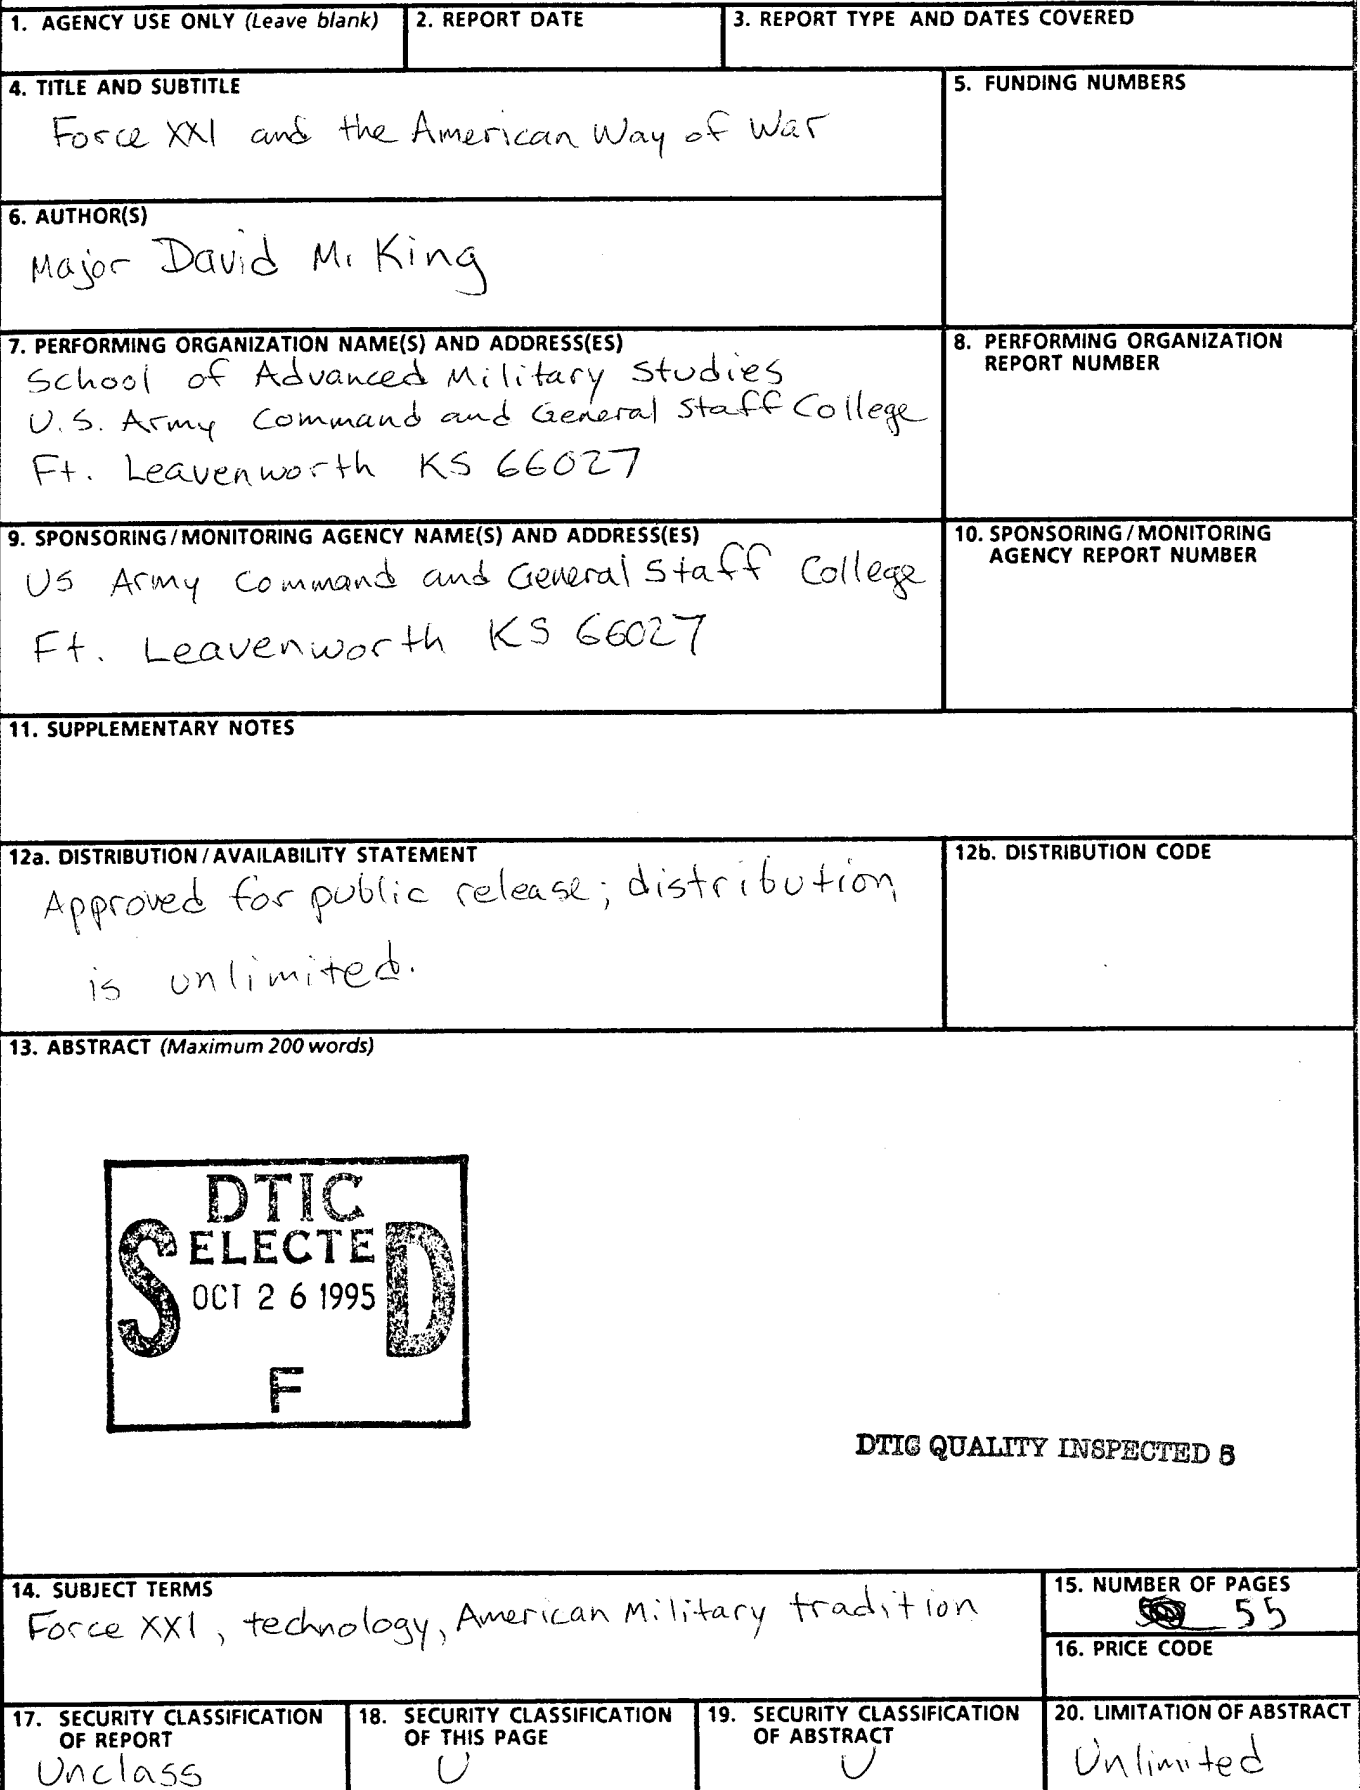 1. AGENCY USE ONLY (Leave blank)
2. REPORT DATE
3. REPORT TYPE AND DATES COVERED
4. TITLE AND SUBTITLE
Force XXI and the American Way of War
5. FUNDING NUMBERS
6. AUTHOR(S)
Major David M. King
7. PERFORMING ORGANIZATION NAME(S) AND ADDRESS(ES)
School of Advanced Military Studies
U.S. Army Command and General Staff College
Ft. Leavenworth KS 66027
8. PERFORMING ORGANIZATION
REPORT NUMBER
9. SPONSORING/MONITORING AGENCY NAME(S) AND ADDRESS(ES)
US Army Command and General Staff College
Ft. Leavenworth KS 66027
10. SPONSORING/MONITORING
AGENCY REPORT NUMBER
11. SUPPLEMENTARY NOTES
12a. DISTRIBUTION/AVAILABILITY STATEMENT
Approved for public release; distribution
is unlimited.
12b. DISTRIBUTION CODE
13. ABSTRACT (Maximum 200 words)
DTIC
S ELECTE D
OCT 26 1995
F
DTIC QUALITY INSPECTED
14. SUBJECT TERMS
Force XXI, technology, American Military tradition
15. NUMBER OF PAGES
55
16. PRICE CODE
17. SECURITY CLASSIFICATION
OF REPORT
Unclass
18. SECURITY CLASSIFICATION
OF THIS PAGE
U
19. SECURITY CLASSIFICATION
OF ABSTRACT
U
20. LIMITATION OF ABSTRACT
Unlimited